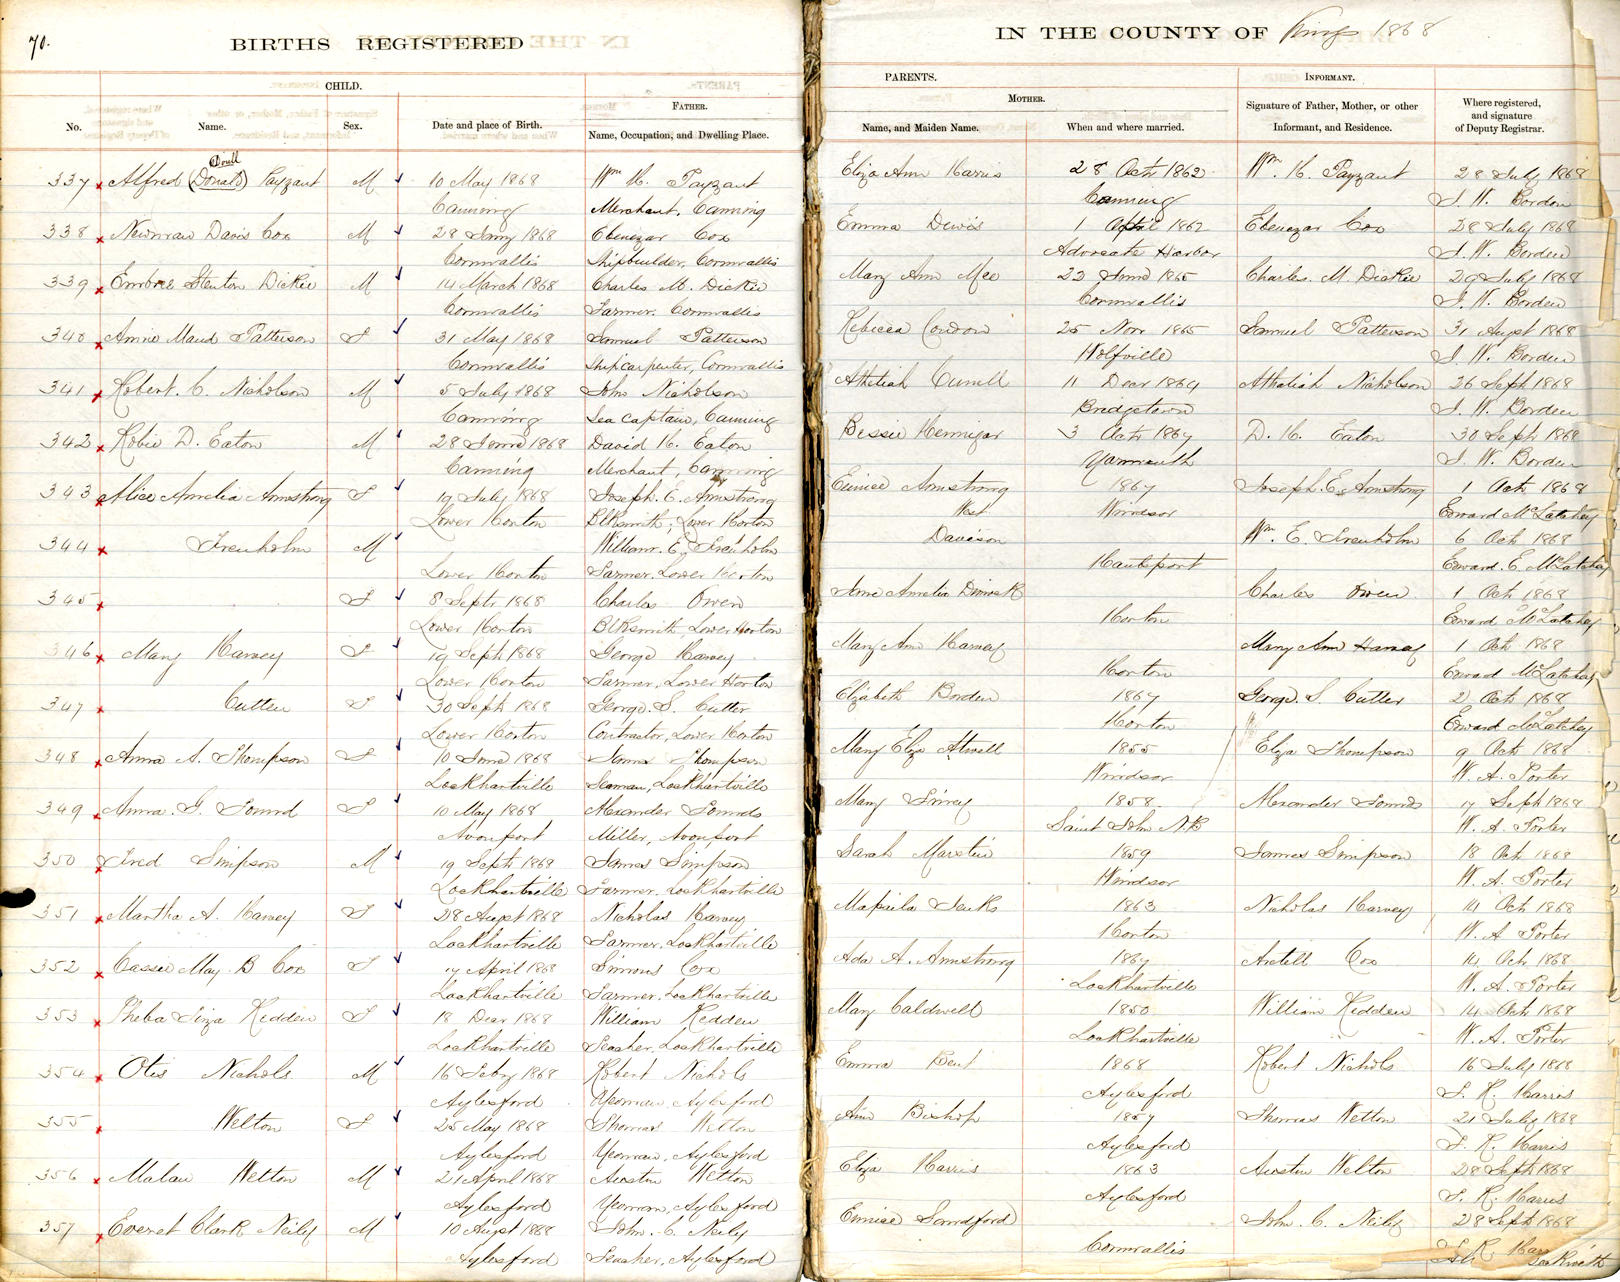 70.
BIRTHS REGISTERED
IN THE COUNTY OF Kings 1868
CHILD.
PARENTS.
INFORMANT.
FATHER.
MOTHER.
No.
Name.
Sex.
Date and place of Birth.
Name, Occupation, and Dwelling Place.
Name, and Maiden Name.
When and where married.
Signature of Father, Mother, or other
Informant, and Residence.
Where registered,
and signature
of Deputy Registrar.
Doull
337 Alfred (Donald) Payzant M 10 May 1868 Wm H. Payzant Eliza Ann Harris 28 Octr 1862 Wm. H. Payzant 28 July 1868
Canning Merchant, Canning Canning J. W. Borden
338 Newman Davis Cox M 28 Jany 1868 Ebenezar Cox Emma Dewis 1 April 1862 Ebenezar Cox 28 July 1868
Cornwallis Shipbuilder, Cornwallis Advocate Harbor J. W. Borden
339 Embree Stenton Dickie M 14 March 1868 Charles M. Dickie Mary Ann Mee 22 June 1865 Charles. M. Dickie 29 July 1868
Cornwallis Farmer. Cornwallis Cornwallis J. W. Borden
340 Annie Maud Patterson F 31 May 1868 Samuel Patterson Rebecca Condon 25 Novr 1865 Samuel Patterson 31 Augst 1868
Cornwallis Shipcarpenter, Cornwallis Wolfville J. W. Borden
341 Robert. C. Nicholson M 5 July 1868 John Nicholson Athaliah 11 Decr 1864 Athaliah Nicholson 26 Septr 1868
Canning Sea Captain, Canning Bridgetown J. W. Borden
342 Robie D. Eaton M 28 June 1868 David H. Eaton Bessie Hennigar 3 Octr 1867 D. H. Eaton 30 Septr 1868
Canning Merchant, Canning Yarmouth J. W. Borden
343 Alice Amelia Armstrong F 19 July 1868 Joseph. E. Armstrong Eunice Armstrong 1867 Joseph. E. Armstrong 1 Octr 1868
Lower Horton Blksmith; Lower Horton West Windsor Edward McLatchey
344 Trenholm M William. E. Trenholm Davison Wm. E. Trenholm 6 Octr 1868
Lower Horton Farmer. Lower Horton Hantsport Edward. E. McLatchey
345 F 8 Septr 1868 Charles Owen Jane Amelia Dimock Charles Owen 1 Octr 1868
Lower Horton Blksmith, Lower Horton Horton Edward McLatchey
346 Mary Harvey F 19 Septr 1868 George Harvey Mary Ann Harvey Mary Ann Harvey 1 Octr 1868
Lower Horton Farmer, Lower Horton Horton Edward McLatchey
347 Cutten F 30 Septr 1868 George. S. Cutter Elizabeth Borden 1867 George. S. Cutter 2 Octr 1868
Lower Horton Contractor, Lower Horton Horton Edward McLatchey
348 Anna A. Thompson F 10 June 1868 James Thompson Mary Eliza Atwell 1855 Eliza Thompson 9 Octr 1868
Lockhartville Seaman, Lockhartville Windsor W. A. Porter
349 Anna. G. Pound F 10 May 1868 Alexander Pounds Mary 1858 Alexander Pounds 17 Septr 1868
Avonport Miller, Avonport Saint John NB W. A. Porter
350 Fred Simpson M 19 Septr 1868 James Simpson Sarah Marstin 1859 James Simpson 18 Octr 1868
Lockhartville Farmer, Lockhartville Windsor W. A. Porter
351 Martha A. Harvey F 28 Augst 1868 Nicholas Harvey 1863 Nicholas Harvey 14 Octr 1868
Lockhartville Farmer, Lockhartville Horton W. A Porter
352 Cassie May. B Cox F 17 April 1868 Simons Cox Ada A. Armstrong 1867 Cox 14 Octr 1868
Lockhartville Farmer, Lockhartville Lockhartville W. A. Porter
353 Pheba Redden F 18 Decr 1868 William Redden Mary Caldwell 1850 William Redden 14 Octr 1868
Lockhartville Teacher, Lockhartville Lockhartville W. A. Porter
354 Otis Nichols M 16 Feby 1868 Robert Nichols Emma Bent 1868 Robert Nichols 16 July 1868
Aylesford Yeoman, Aylesford Aylesford T. R. Harris
355 Welton F 25 May 1868 Thomas Welton Ann Bishop 1857 Thomas Welton 21 July 1868
Aylesford Yeoman, Aylesford Aylesford T. R. Harris
356 Welton M 21 April 1868 Austin Welton Eliza Harris 1863 Austin Welton 28 Septr 1868
Aylesford Yeoman, Aylesford Aylesford T. R. Harris
357 Everet Clark Neily M 10 Augst 1868 John. C. Neily Eunice Sandford John. C. Neily 28 Septr 1868
Aylesford Teacher, Aylesford Cornwallis